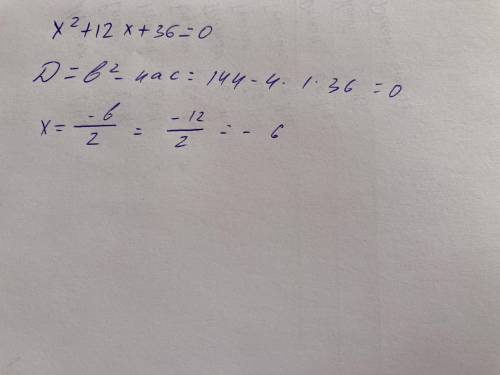 x²+12x+36=0
D=b²-4ac=144-4·1·36=0
x=-b/2=-12/2=-6